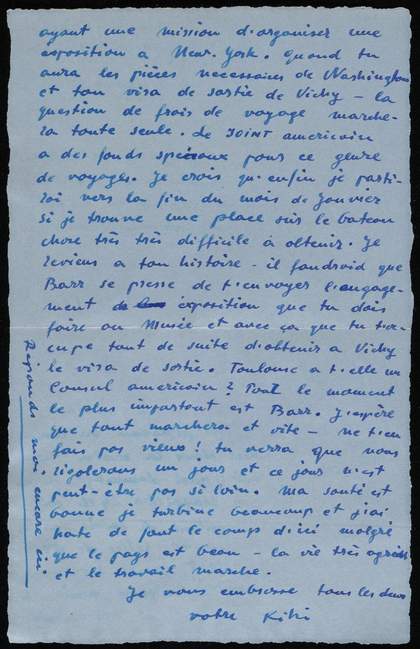 ayant une mission d'organiser une
exposition a New-York. quand tu
aura les pièces necessaires de Washington
et ton visa de sortie de Vichy – la
question de frais de voyage marche-
ra toute seule. Le JOINT americain
a des fonds speciaux pour ce genre
de voyages. Je crois qu'enfin je parti-
rai vers la fin du mois de Janvier
si je trouve une place sur le bateau
chose très très difficile à obtenir. Je
reviens a ton histoire - il faudroid que
Barr se presse de t'envoyer l'engage-
ment exposition que tu dois
faire au Musée et avec ça que tu t'oc-
cupe tout de suite d'obtenir a Vichy
le visa de sortie. Toulouse a t'elle un
Consul americain? Pout le moment
le plus important est Barr. J'espère
que tout marchera et vite – ne t'en
fais pas vieux! tu verra que nous
rigolerons un jour et ce jour n'est
peut-être pas si loin. Ma santé est
bonne je turbine beaucoup et j'ai
hate de fout le camps d'ici malgré
que le pays est beau – la vie très
et le travail marche.
Je vous embrasse tous les deux
votre Kiki
Reponds moi encore ici